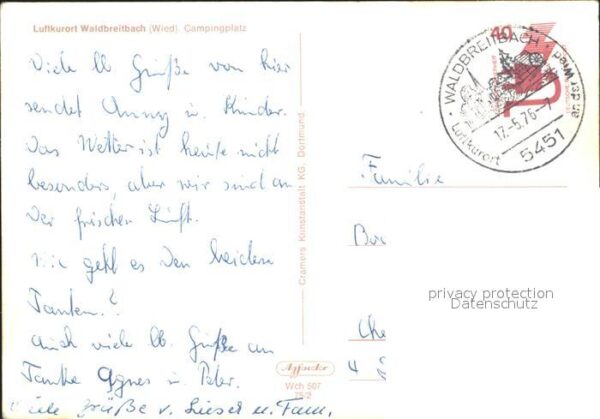 Luftkurort Waldbreitbach (Wied) Campingplatz
Viele lb Grüße von hier
sendet Anny u. Kinder.
Das Wetter ist heute nicht
besonders, aber wir sind an
der frischen Luft.
Wie geht es den beiden
Tanten?
Auch viele lb. Grüße an
Tante Agnes u. Peter.
Viele Grüße v. Liesel u. Fam.
Cramers Kunstanstalt KG, Dortmund
Wch 507
75/2
40
WALDBREITBACH
an der Wied
Luftkurort
17.-5.76-7
5451
Familie
privacy protection
Datenschutz